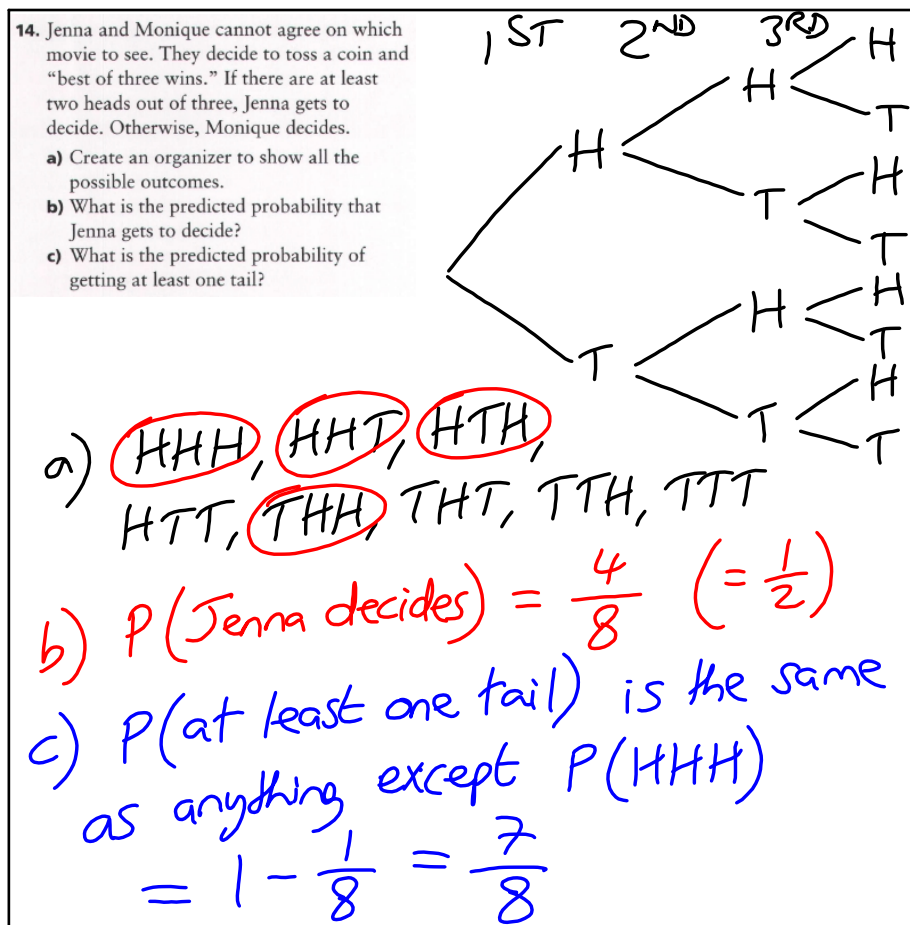 14. Jenna and Monique cannot agree on which
movie to see. They decide to toss a coin and
“best of three wins.” If there are at least
two heads out of three, Jenna gets to
decide. Otherwise, Monique decides.
a) Create an organizer to show all the
possible outcomes.
b) What is the predicted probability that
Jenna gets to decide?
c) What is the predicted probability of
getting at least one tail?
1ST 2ND 3RD
H
H
T
H
H
T
T
H
H
T
T
H
T
T
a) HHH, HHT, HTH,
HTT, THH, THT, TTH, TTT
b) P(Jenna decides) = 4/8 (= 1/2)
c) P(at least one tail) is the same
as anything except P(HHH)
= 1 - 1/8 = 7/8